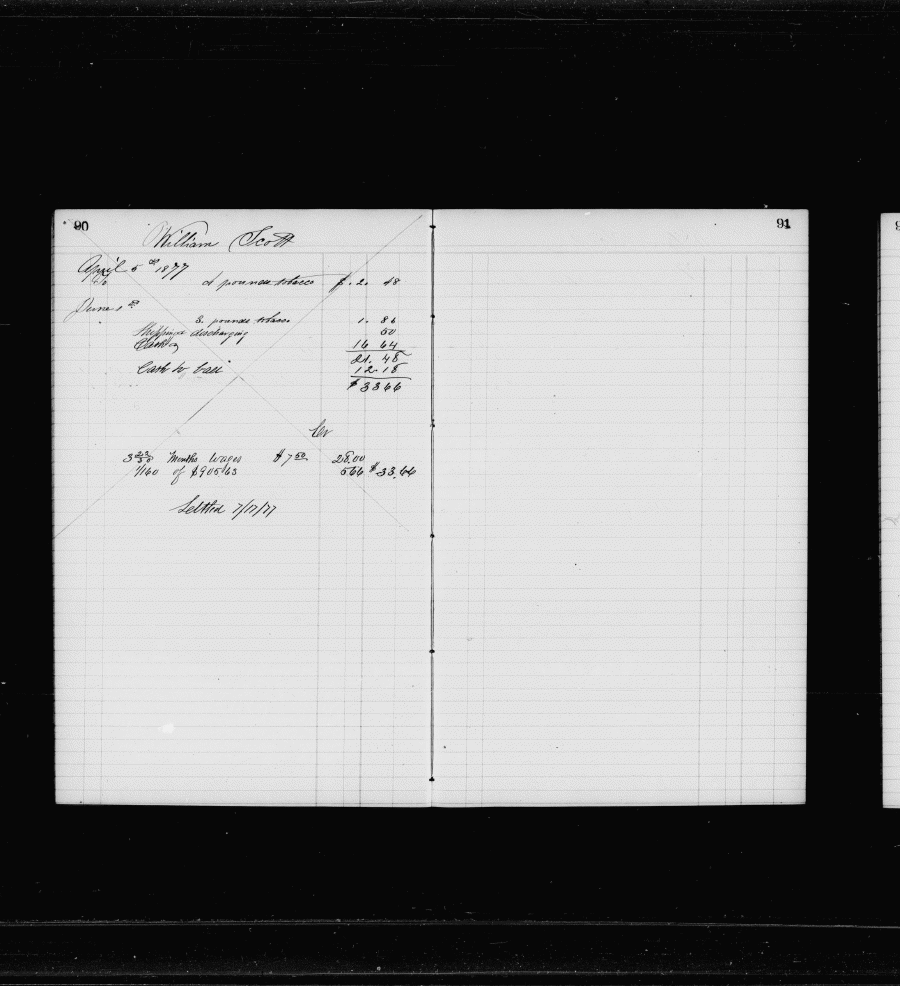 90
William Scott
April 5th 1877
4 pounds tobacco $ . 2. 48
June 1st
3. pounds tobacco 1. 86
Shipping & discharging 50
16 64
21. 48
Cash to ball 12.18
$ 33 66
Cr
3 22/30 Months Wages $ 7 50 28.00
1/160 of $905.63 566 $ 33.66
Settled 7/17/77
91